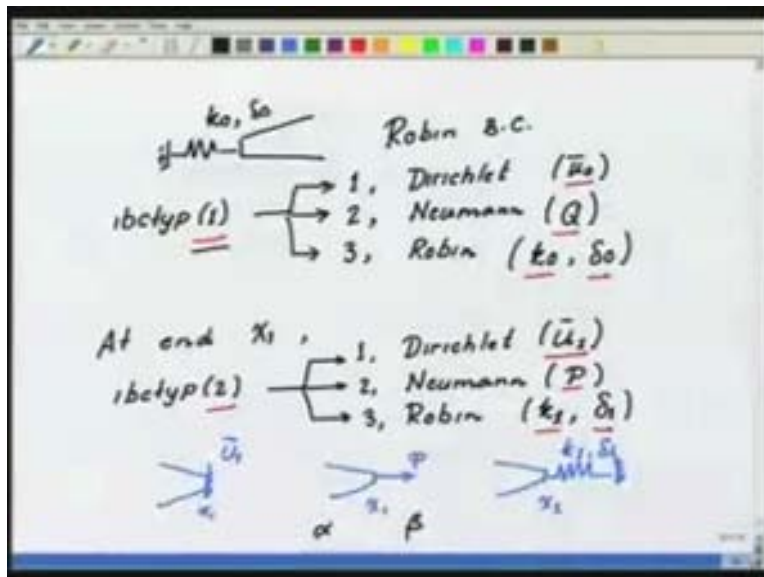 k₀, δ₀
Robin B.C.
ibctyp(1)
1, Dirichlet (ū₀)
2, Neumann (Q)
3, Robin (k₀, δ₀)
At end x₁,
ibctyp(2)
1, Dirichlet (ū₁)
2, Neumann (P)
3, Robin (k₁, δ₁)
ū₁ P k₁ δ₁
x₁ x₁ x₁
α β